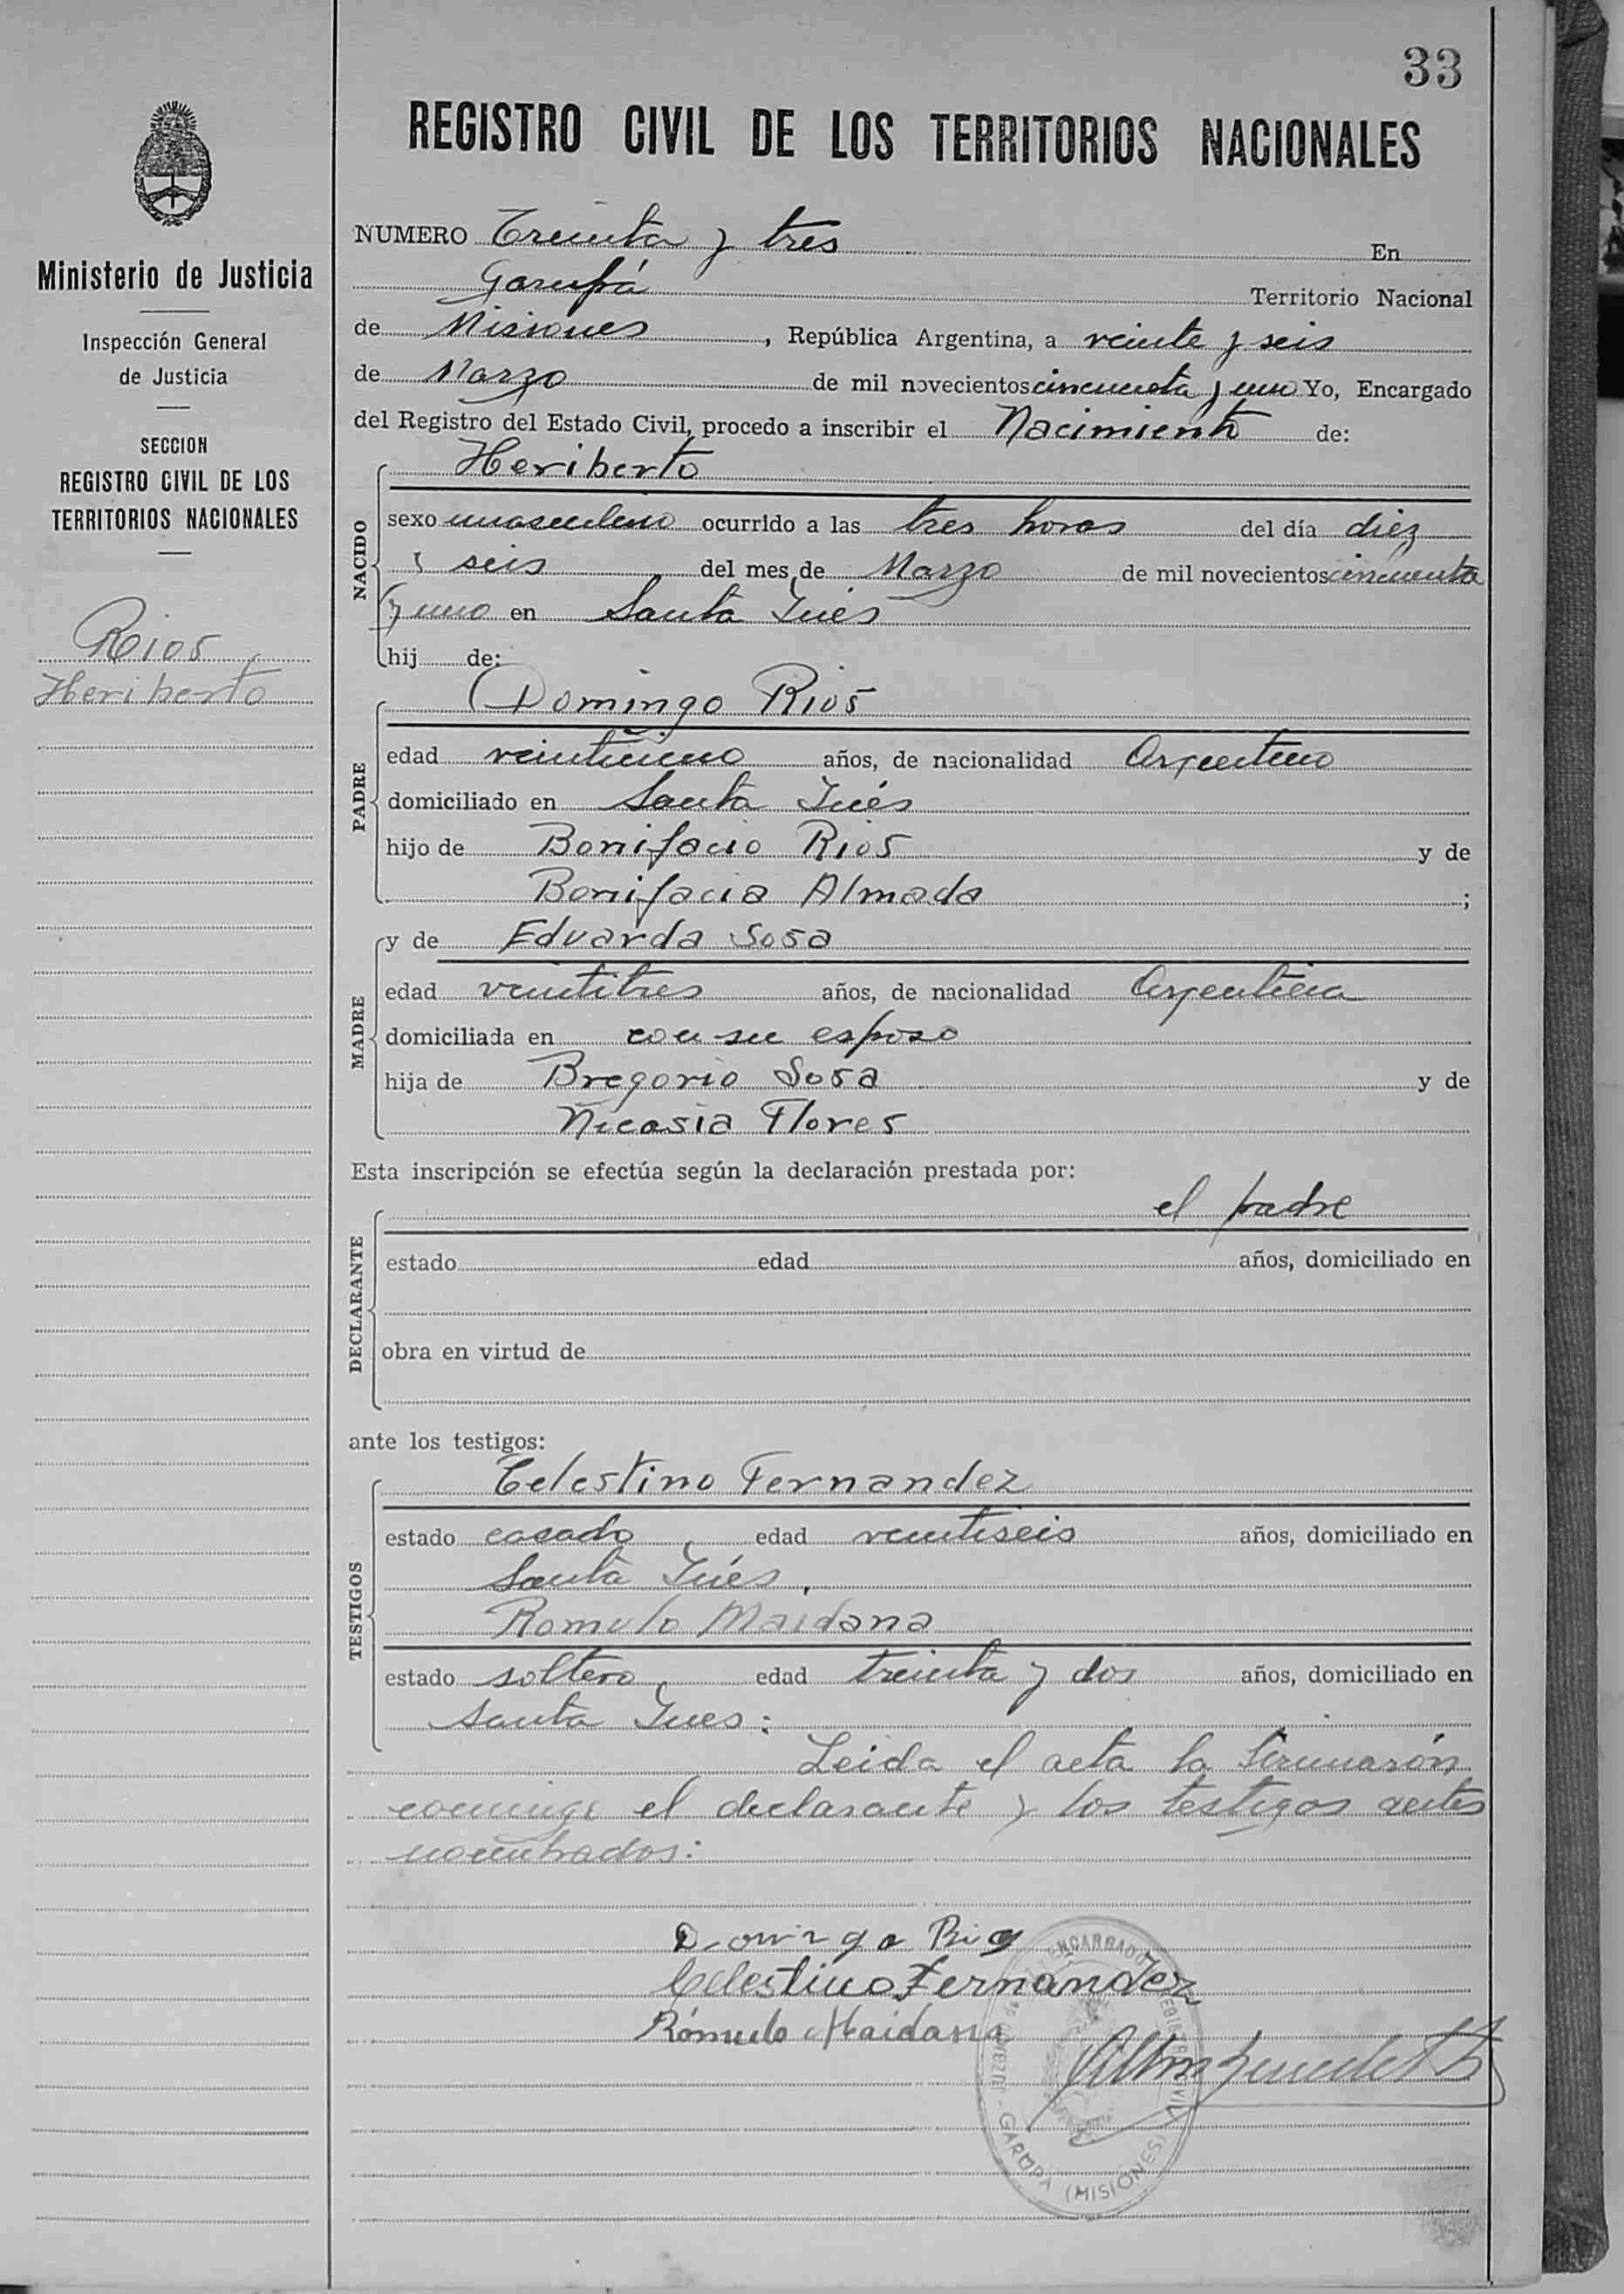 33
REGISTRO CIVIL DE LOS TERRITORIOS NACIONALES
Ministerio de Justicia
Inspección General
de Justicia
SECCION
REGISTRO CIVIL DE LOS
TERRITORIOS NACIONALES
Rios
Heriberto
NUMERO Treinta y tres En
Garupá Territorio Nacional
de Misiones, República Argentina, a veinte y seis
de Marzo de mil novecientos cincuenta y uno Yo, Encargado
del Registro del Estado Civil, procedo a inscribir el Nacimiento de:
NACIDO
Heriberto
sexo masculino ocurrido a las tres horas del día diez
y seis del mes de Marzo de mil novecientos cincuenta
y uno en Santa Inés
hij de:
PADRE
Domingo Rios
edad veintiuno años, de nacionalidad Argentino
domiciliado en Santa Inés
hijo de Bonifacio Rios y de
Bonifacia Almada ;
MADRE
y de Eduarda Sosa
edad veintitres años, de nacionalidad Argentina
domiciliada en con su esposo
hija de Bregorio Sosa y de
Nicasia Flores
Esta inscripción se efectúa según la declaración prestada por:
DECLARANTE
el padre
estado edad años, domiciliado en
obra en virtud de
ante los testigos:
TESTIGOS
Celestino Fernandez
estado casado edad veintiseis años, domiciliado en
Santa Inés,
Romulo Maidana
estado soltero edad treinta y dos años, domiciliado en
Santa Ines:
Leida el acta la firmarón
conmigo el declarante y los testigos antes
nombrados:
Domingo Rios
Celestino Fernandez
Rómulo Maidana
ENCARGADO REGISTRO CIVIL
GARUPA (MISIONES)